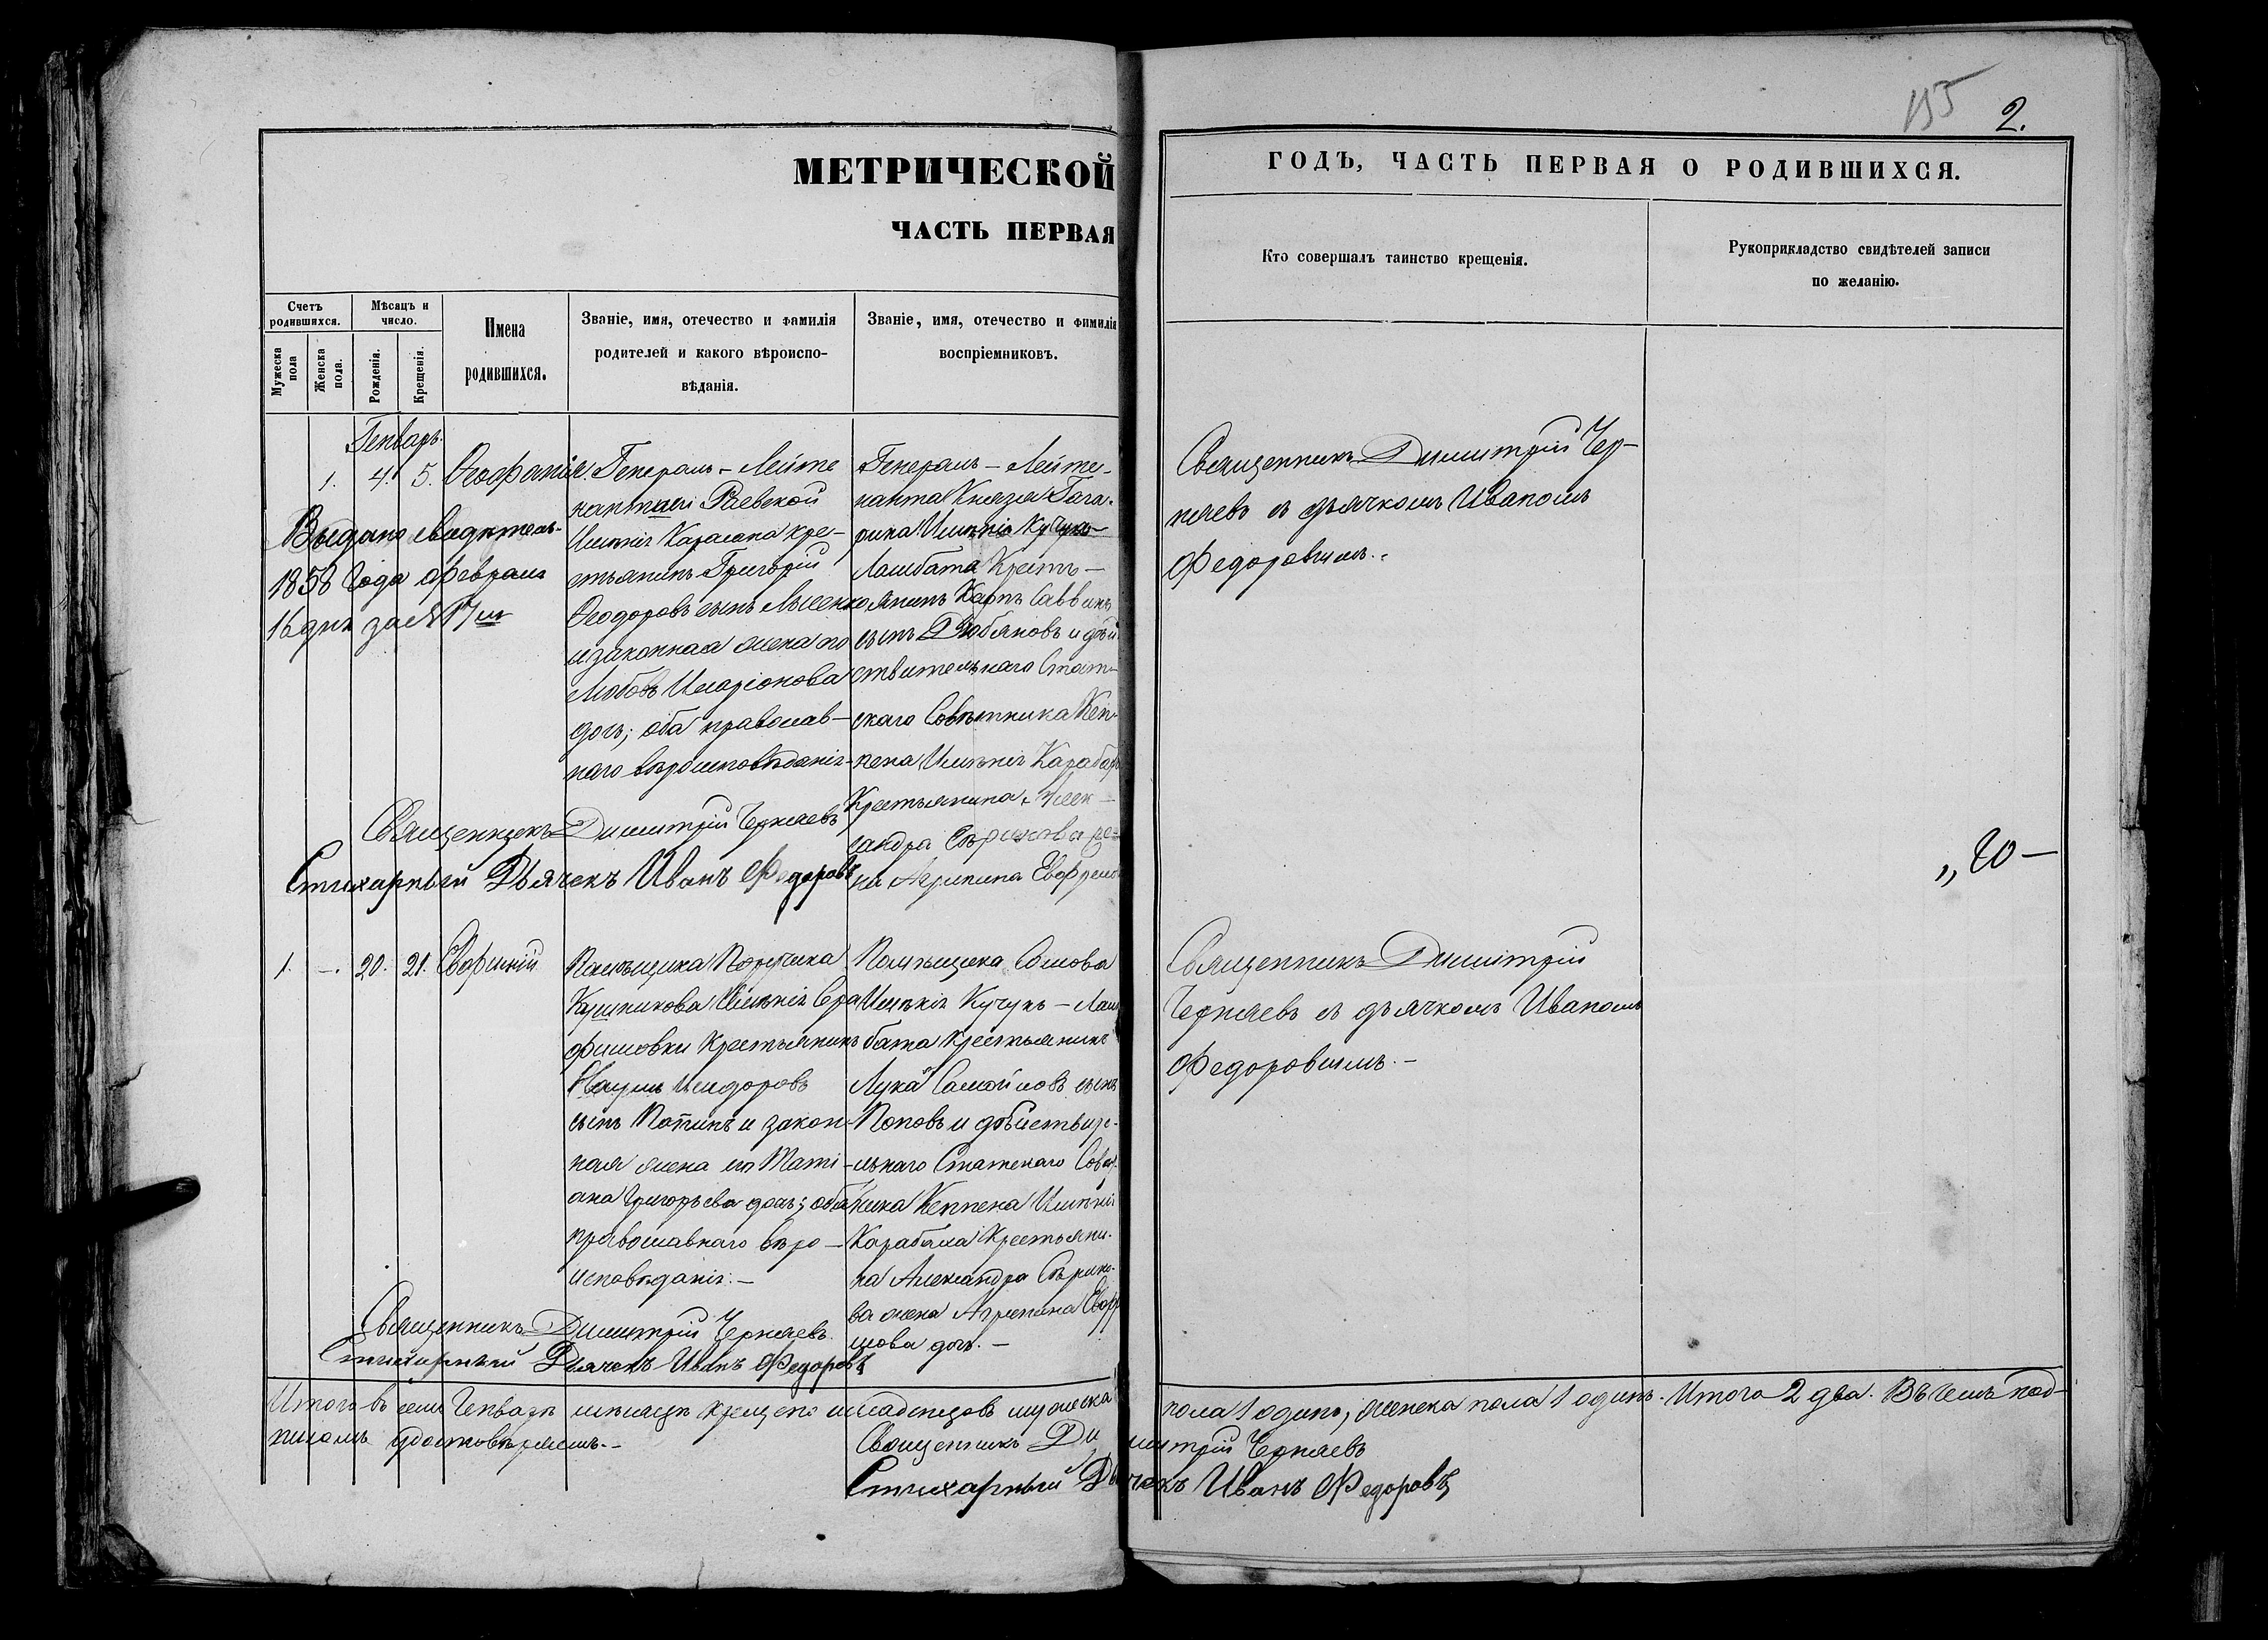 155 2.
МЕТРИЧЕСКОЙ
ЧАСТЬ ПЕРВАЯ
ГОДЪ, ЧАСТЬ ПЕРВАЯ О РОДИВШИХСЯ.
Счетъ родившихся.
Мужеска пола
Женска пола.
Мѣсяцъ и число.
Рожденія.
Крещенія.
Имена
родившихся.
Званіе, имя, отечество и фамилія
родителей и какого вѣроиспо-
вѣданія.
Званіе, имя, отечество и фимилія
воспріемниковъ.
Кто совершалъ таинство крещенія.
Рукоприкладство свидѣтелей записи
по желанію.
Генварь.
1. 4. 5. Ѳеофанія.
Выдано свидѣтель-
1858 Года Февраля
16 дня за № 17м
Генералъ-Лейте
нантши Раевской
Имѣнія Карасана кре-
стьянинъ Григорій
Ѳеодоровъ сынъ Лысенко
и законная жена его
Любовь Иларіонова
дочь; оба православ-
наго вѣроисповѣданія.
Генералъ-Лейте-
нанта Князя Гага-
рина Имѣнія Кучукъ-
Ламбата Кресть-
янинъ Карпъ Саввинъ
сынъ Дюбяновъ и дѣй
ствительнаго Стат-
скаго Совѣтника Кеп-
пена Имѣнія Карабаха
Крестьянина Алек-
сандра Сѣрикова же-
на Агрипина Евфремо
Священникъ Димитрій Чер-
няевъ съ дьячкомъ Иваномъ
Федоровымъ.
Священникъ Димитрій Черняевъ
Стихарный Дьячекъ Иванъ Федоровъ
„20—
1. -. 20. 21. Евфимій
Помѣщика Поручика
Кушникова Имѣнія Сера
фимовки Крестьянинъ
Наумъ Исидоровъ
сынъ Потинъ и закон-
ная жена его Тати-
ана Григорьева дочь; оба
православнаго вѣро-
исповѣданія.-
Помѣщика Сомова
Имѣнія Кучукъ-Лам
бата Крестьянинъ
Лука Самойловъ сынъ
Поповъ и дѣйствите-
льнаго Статскаго Совѣт
ника Кеппена Имѣнія
Карабаха Крестьяни-
на Александра Сѣрико-
ва жена Агрипина Евфр
мова дочь.-
Священникъ Димитрій
Черняевъ съ дьячкомъ Иваномъ
Федоровымъ.-
Священникъ Димитрій Черняевъ.
Стихарный Дьячекъ Иванъ Федоровъ
Итого въ семъ Генварѣ мѣсяцѣ крещено младенцовъ мужеска пола 1 одинъ, женска пола 1 одинъ. Итого 2 два. Въ чемъ под-
писомъ удостовѣряемъ.- Священникъ Димитрій Черняевъ
Стихарный Дьячекъ Иванъ Федоровъ